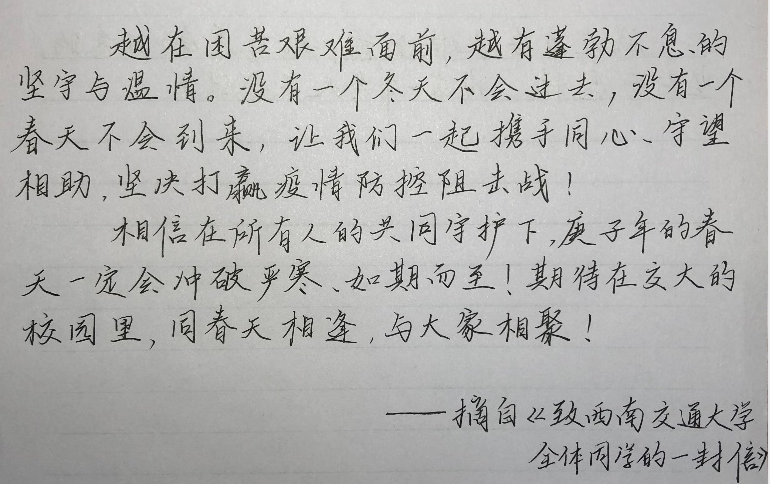 越在困苦艰难面前,越有蓬勃不息的
坚守与温情。没有一个冬天不会过去,没有一个
春天不会到来,让我们一起携手同心、守望
相助,坚决打赢疫情防控阻击战!
相信在所有人的共同守护下,庚子年的春
天一定会冲破严寒、如期而至!期待在交大的
校园里,同春天相逢,与大家相聚!
——摘自《致西南交通大学
全体同学的一封信》